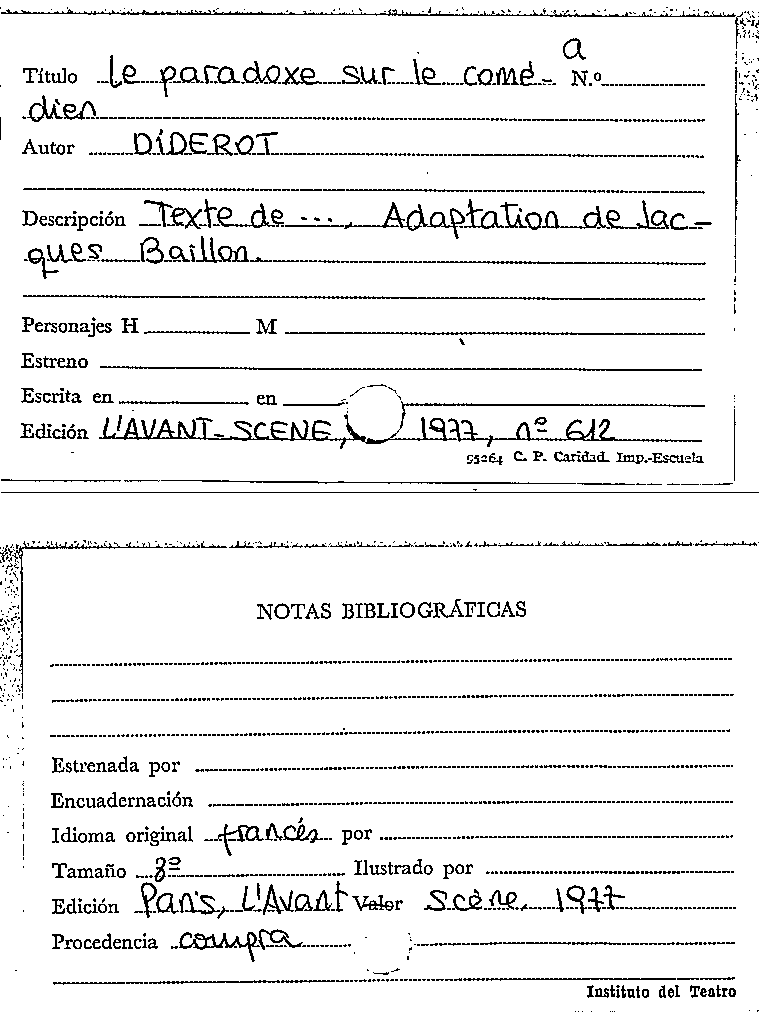 a
Título Le paradoxe sur le comé- N.º
dien
Autor DIDEROT
Descripción Texte de ..., Adaptation de Jac-
ques Baillon.
Personajes H M
Estreno
Escrita en en
Edición L'AVANT-SCENE, 1977, nº 612
95264 C. P. Caridad. Imp.-Escuela
NOTAS BIBLIOGRÁFICAS
Estrenada por
Encuadernación
Idioma original francés por
Tamaño 8º Ilustrado por
Edición Paris, L'Avant Valor Scène, 1977
Procedencia compra
Instituto del Teatro